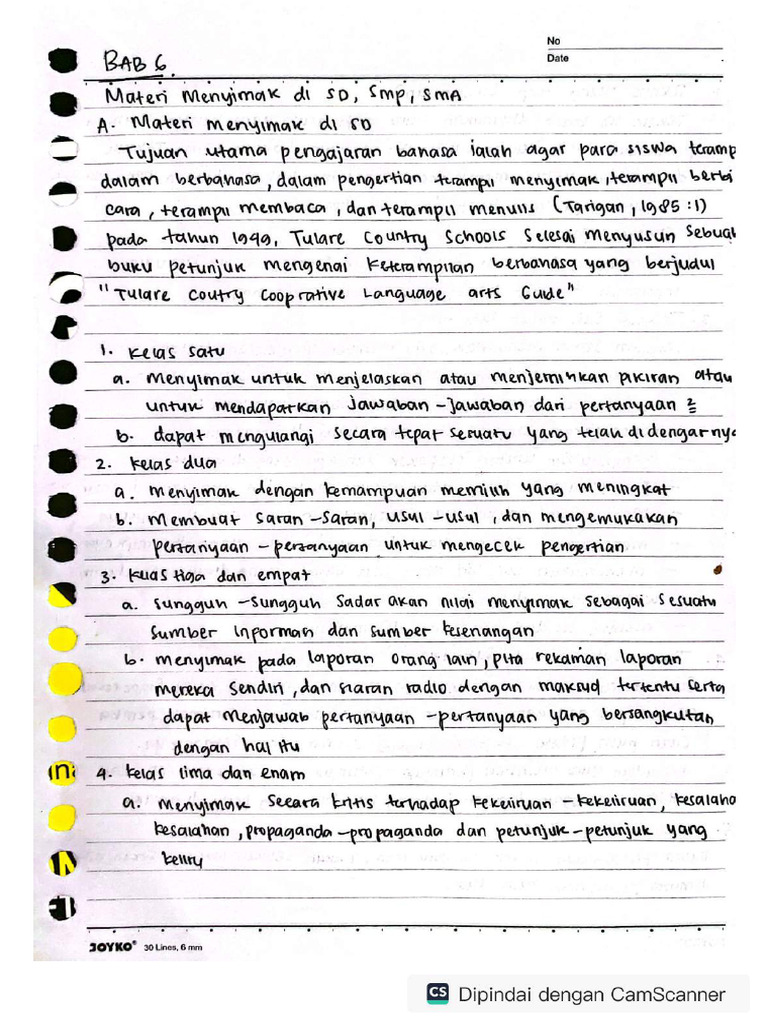 No
Date
BAB 6.
Materi Menyimak di SD, Smp, SMA
A. Materi menyimak di SD
Tujuan utama pengajaran bahasa ialah agar para siswa teramp
dalam berbahasa, dalam pengertian terampil menyimak, terampil berbi
cara, terampil membaca, dan terampil menulis (Tarigan, 1985:1)
pada tahun 1949, Tulare Country Schools Selesai menyusun sebuah
buku petunjuk mengenai keterampilan berbahasa yang berjudul
"Tulare Coutry Cooprative Language arts Guide"
1. kelas satu
a. Menyimak untuk menjelaskan atau menjernihkan pikiran atau
untuk mendapatkan Jawaban-Jawaban dari pertanyaan 2
b. dapat mengulangi secara tepat sesuatu yang telah di dengarnya
2. kelas dua
a. menyimak dengan kemampuan memilih yang meningkat
b. Membuat saran-saran, usul-usul, dan mengemukakan
pertanyaan-pertanyaan untuk mengecek pengertian
3. kelas tiga dan empat
a. sungguh-sungguh sadar akan nilai menyimak sebagai sesuatu
sumber informasi dan sumber kesenangan
b. menyimak pada laporan orang lain, pita rekaman laporan
mereka sendiri, dan siaran radio dengan maksud tertentu serta
dapat menjawab pertanyaan-pertanyaan yang bersangkutan
dengan hal itu
4. kelas lima dan enam
a. menyimak secara kritis terhadap kekeliruan-kekeliruan, kesalaha
kesalahan, propaganda-propaganda dan petunjuk-petunjuk yang
keliru
JOYKO 30 Lines, 6 mm
CS Dipindai dengan CamScanner